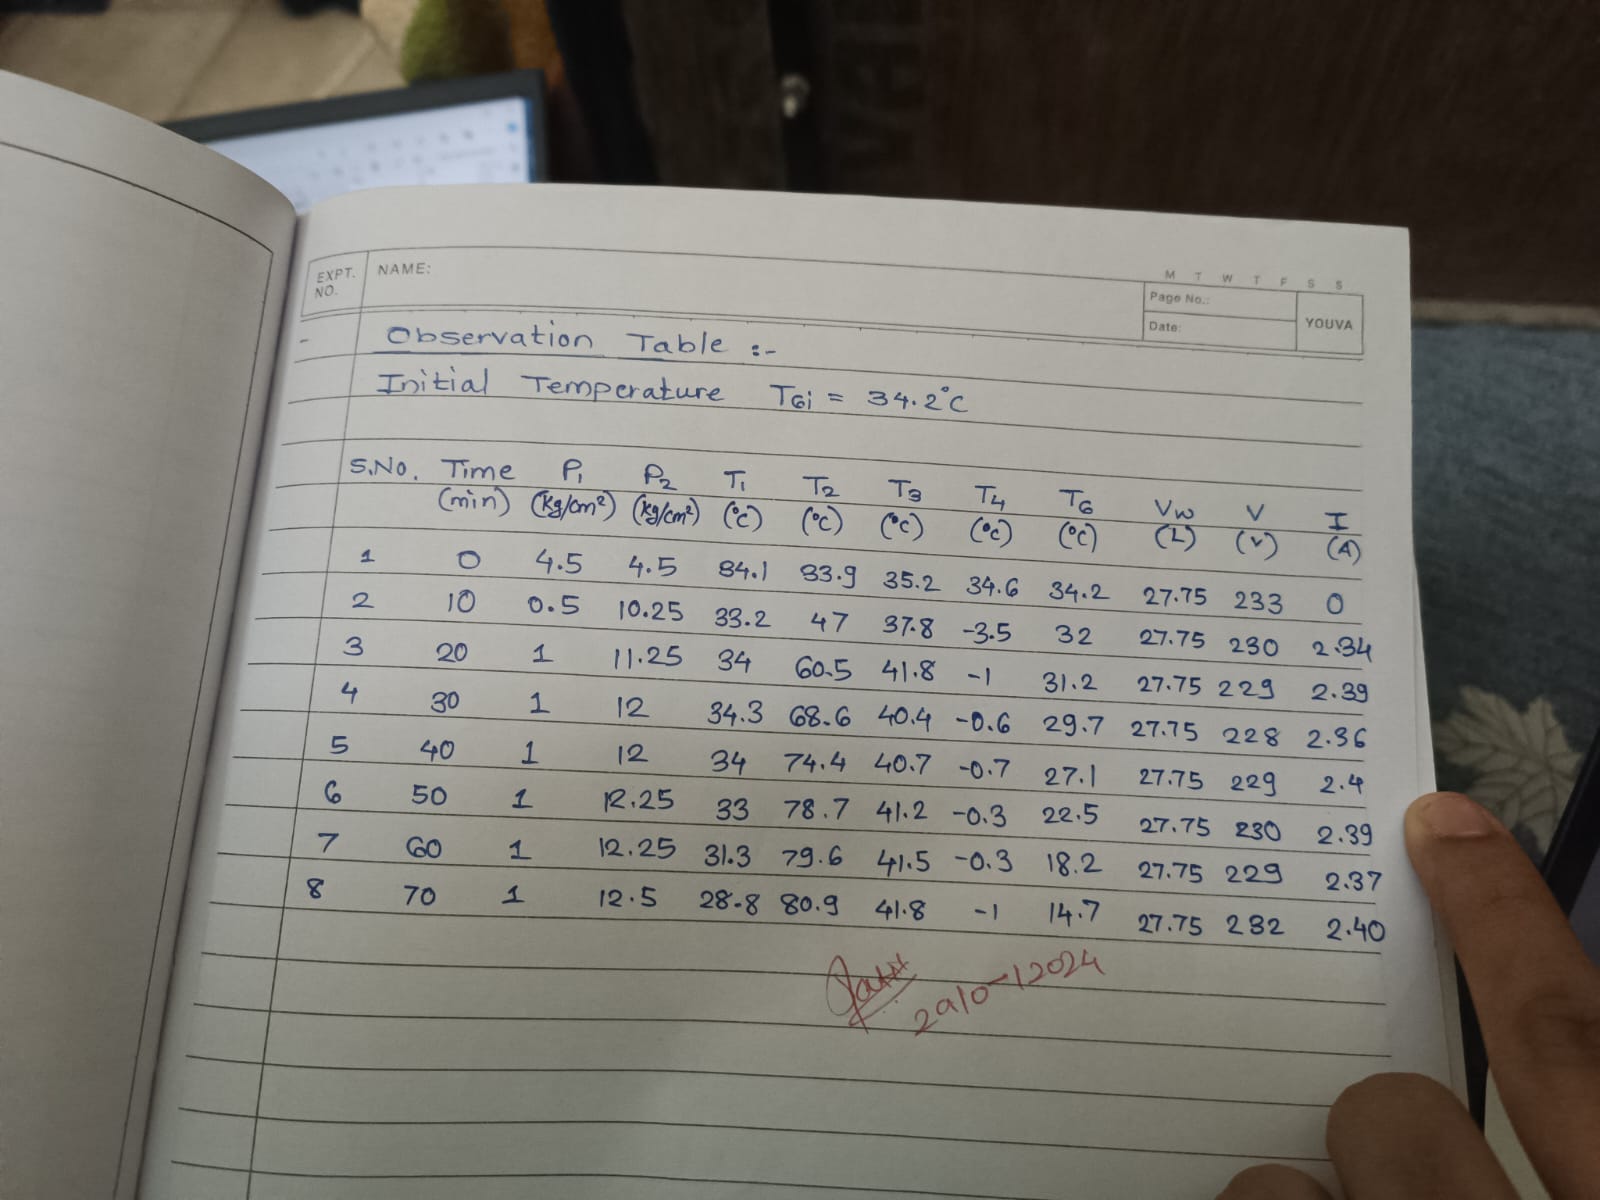 EXPT. NO. NAME: M T W T F S S
Page No.:
Date:
YOUVA
Observation Table :-
Initial Temperature T6i = 34.2°C
S.No. Time P1 P2 T1 T2 T3 T4 T6 Vw V I
(min) (kg/cm²) (kg/cm²) (°C) (°C) (°C) (°C) (°C) (L) (V) (A)
1 0 4.5 4.5 34.1 33.9 35.2 34.6 34.2 27.75 233 0
2 10 0.5 10.25 33.2 47 37.8 -3.5 32 27.75 230 2.34
3 20 1 11.25 34 60.5 41.8 -1 31.2 27.75 229 2.39
4 30 1 12 34.3 68.6 40.4 -0.6 29.7 27.75 228 2.36
5 40 1 12 34 74.4 40.7 -0.7 27.1 27.75 229 2.4
6 50 1 12.25 33 78.7 41.2 -0.3 22.5 27.75 230 2.39
7 60 1 12.25 31.3 79.6 41.5 -0.3 18.2 27.75 229 2.37
8 70 1 12.5 28.8 80.9 41.8 -1 14.7 27.75 232 2.40